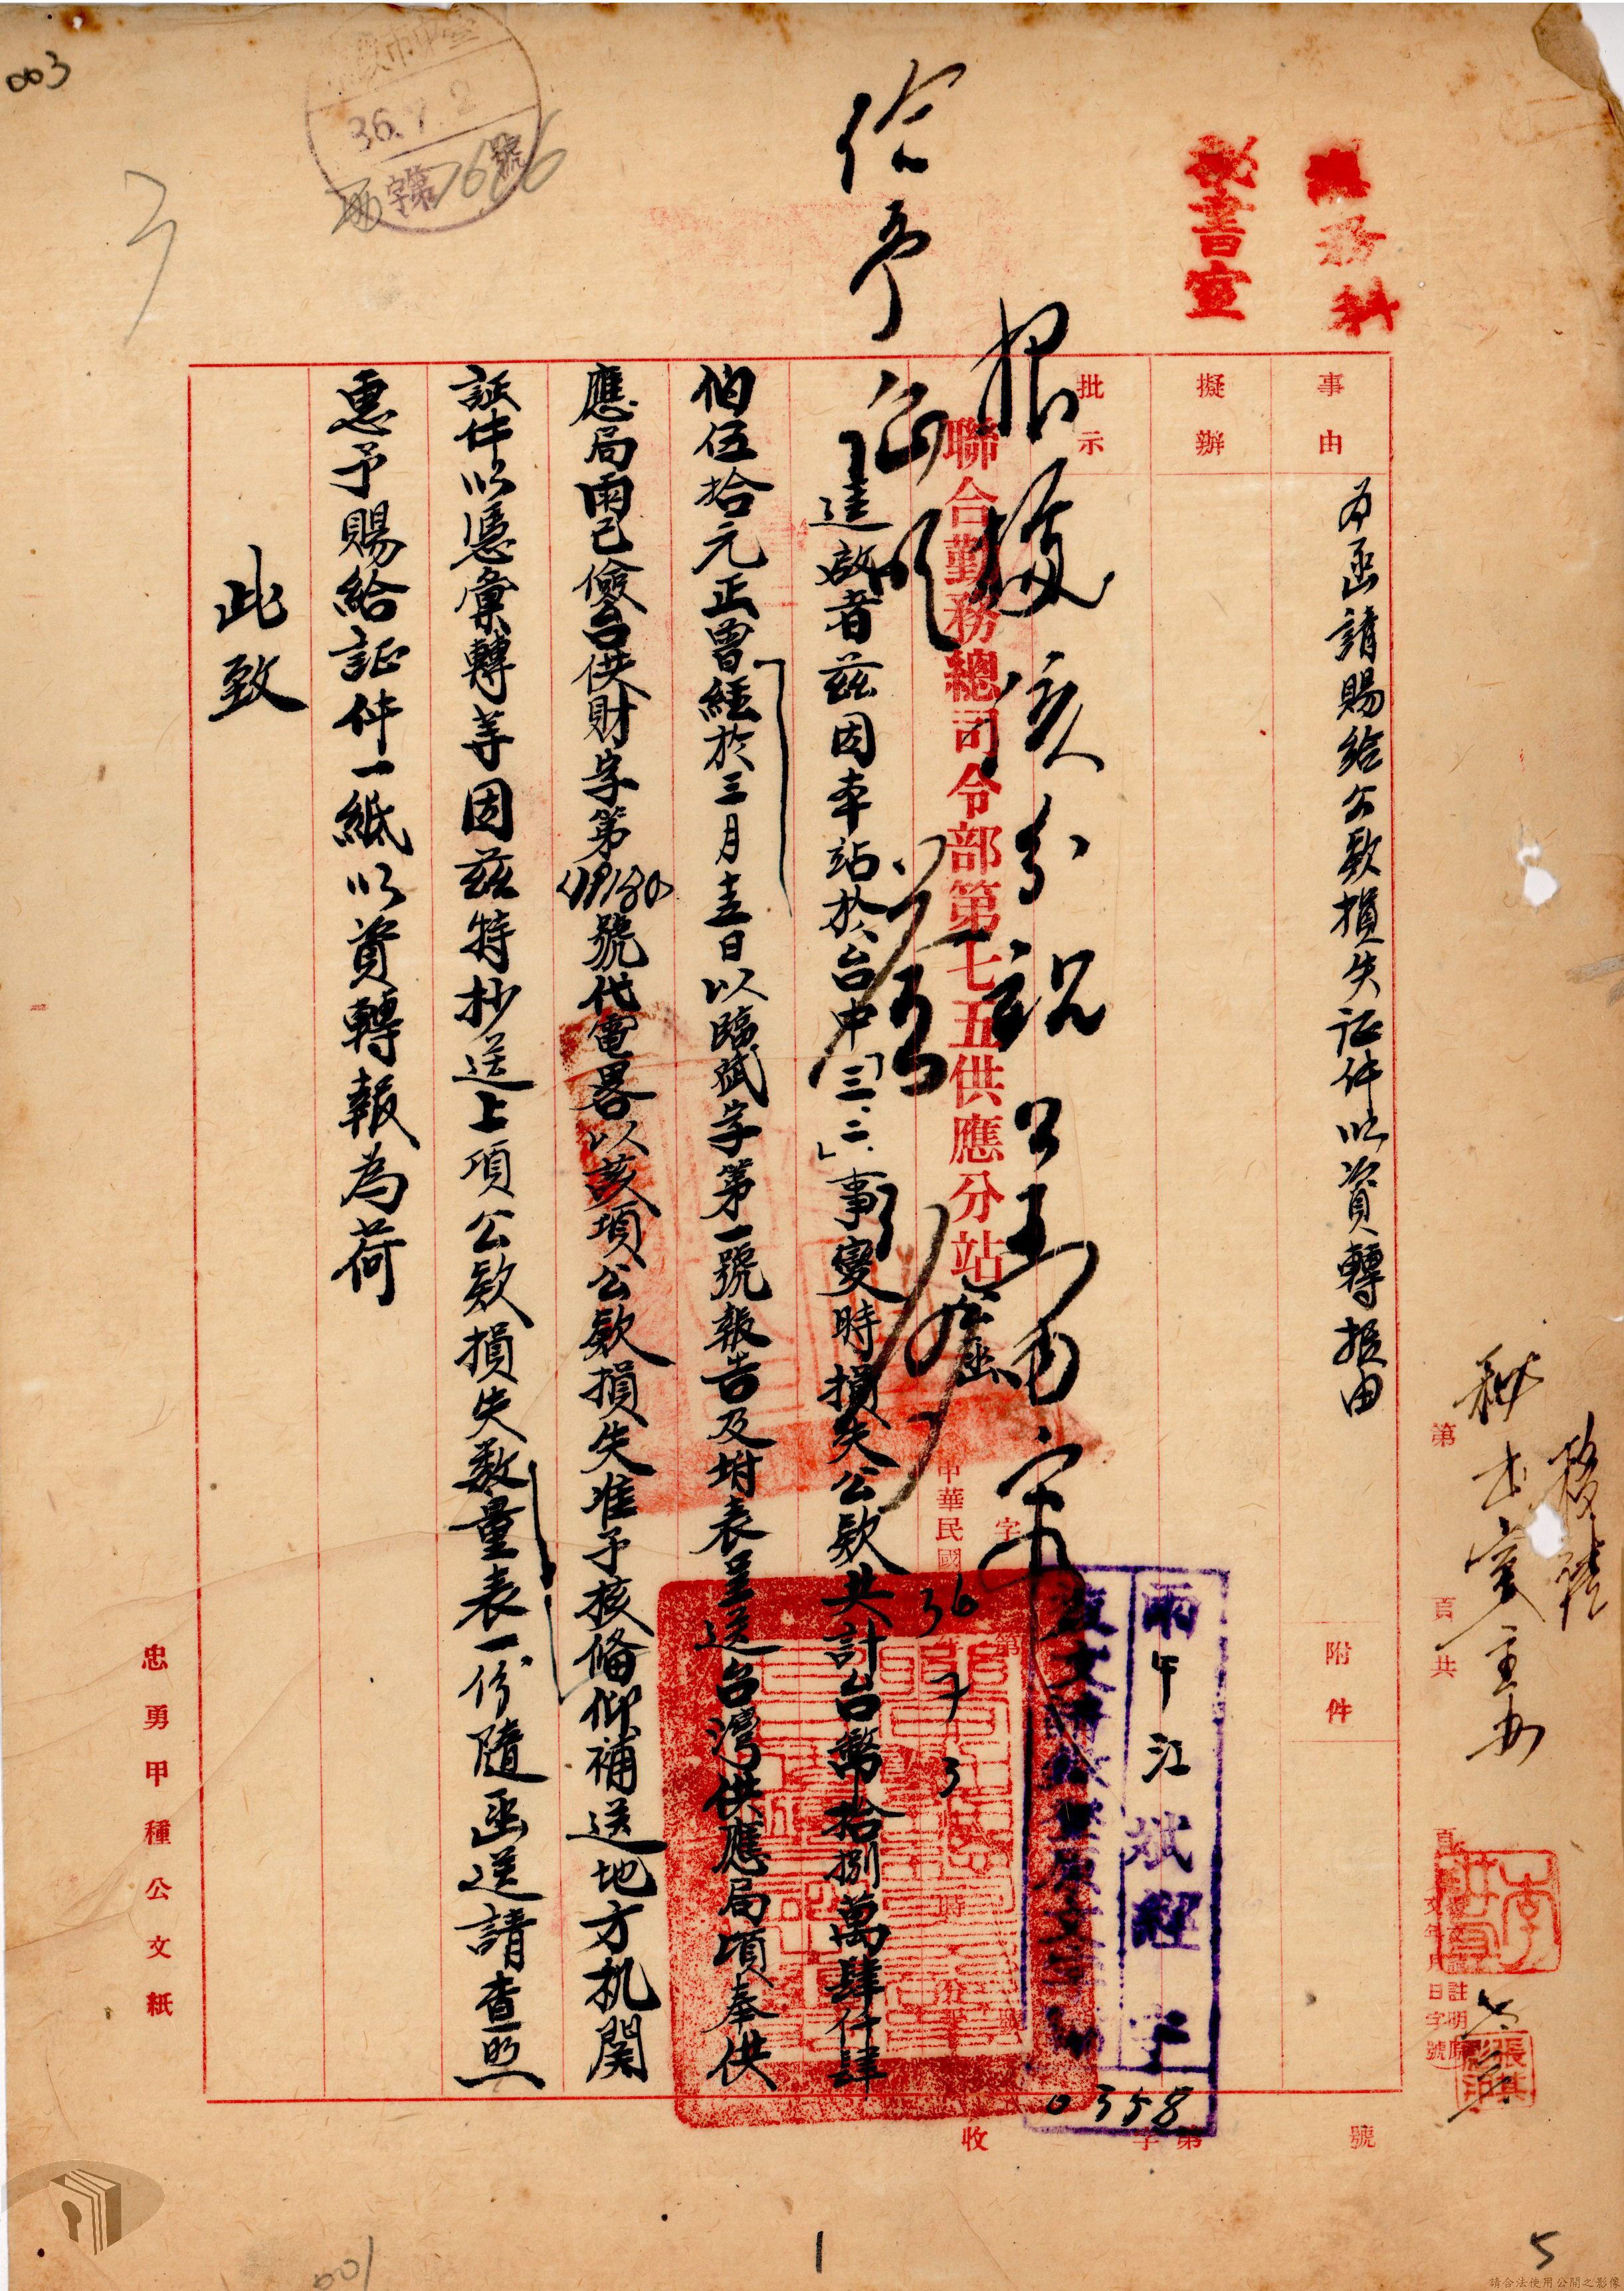 003
台中市政
36.7.2
字第7686號
總務科
秘書室
事由
為函請賜給公款損失証件以資轉報由
附件
擬辦
批示
給予
証明
根據該分
聯合勤務總司令部第七五供應分站
公函
字第
號
中華民國36年7月3日
時
分
收
雨午江斌經字
復文請敘明原文字號
0358
逕啟者茲因本站於台中「三.二.」事變時損失公款共計台幣拾捌萬肆仟肆
佰伍拾元正曾經於三月圭日以臨斌字第一號報告及坿表呈送台灣供應局頃奉供
應局雨已儉台供財字第49180號代電畧以該項公款損失准予核俻仰補送地方机関
証件以憑彙轉等因茲特抄送上項公款損失数量表一份隨函送請查照
惠予賜給証件一紙以資轉報為荷
此致
秘書室主办
第
頁共
頁
忠勇甲種公文紙
001
1
5
請合法使用公開之影像